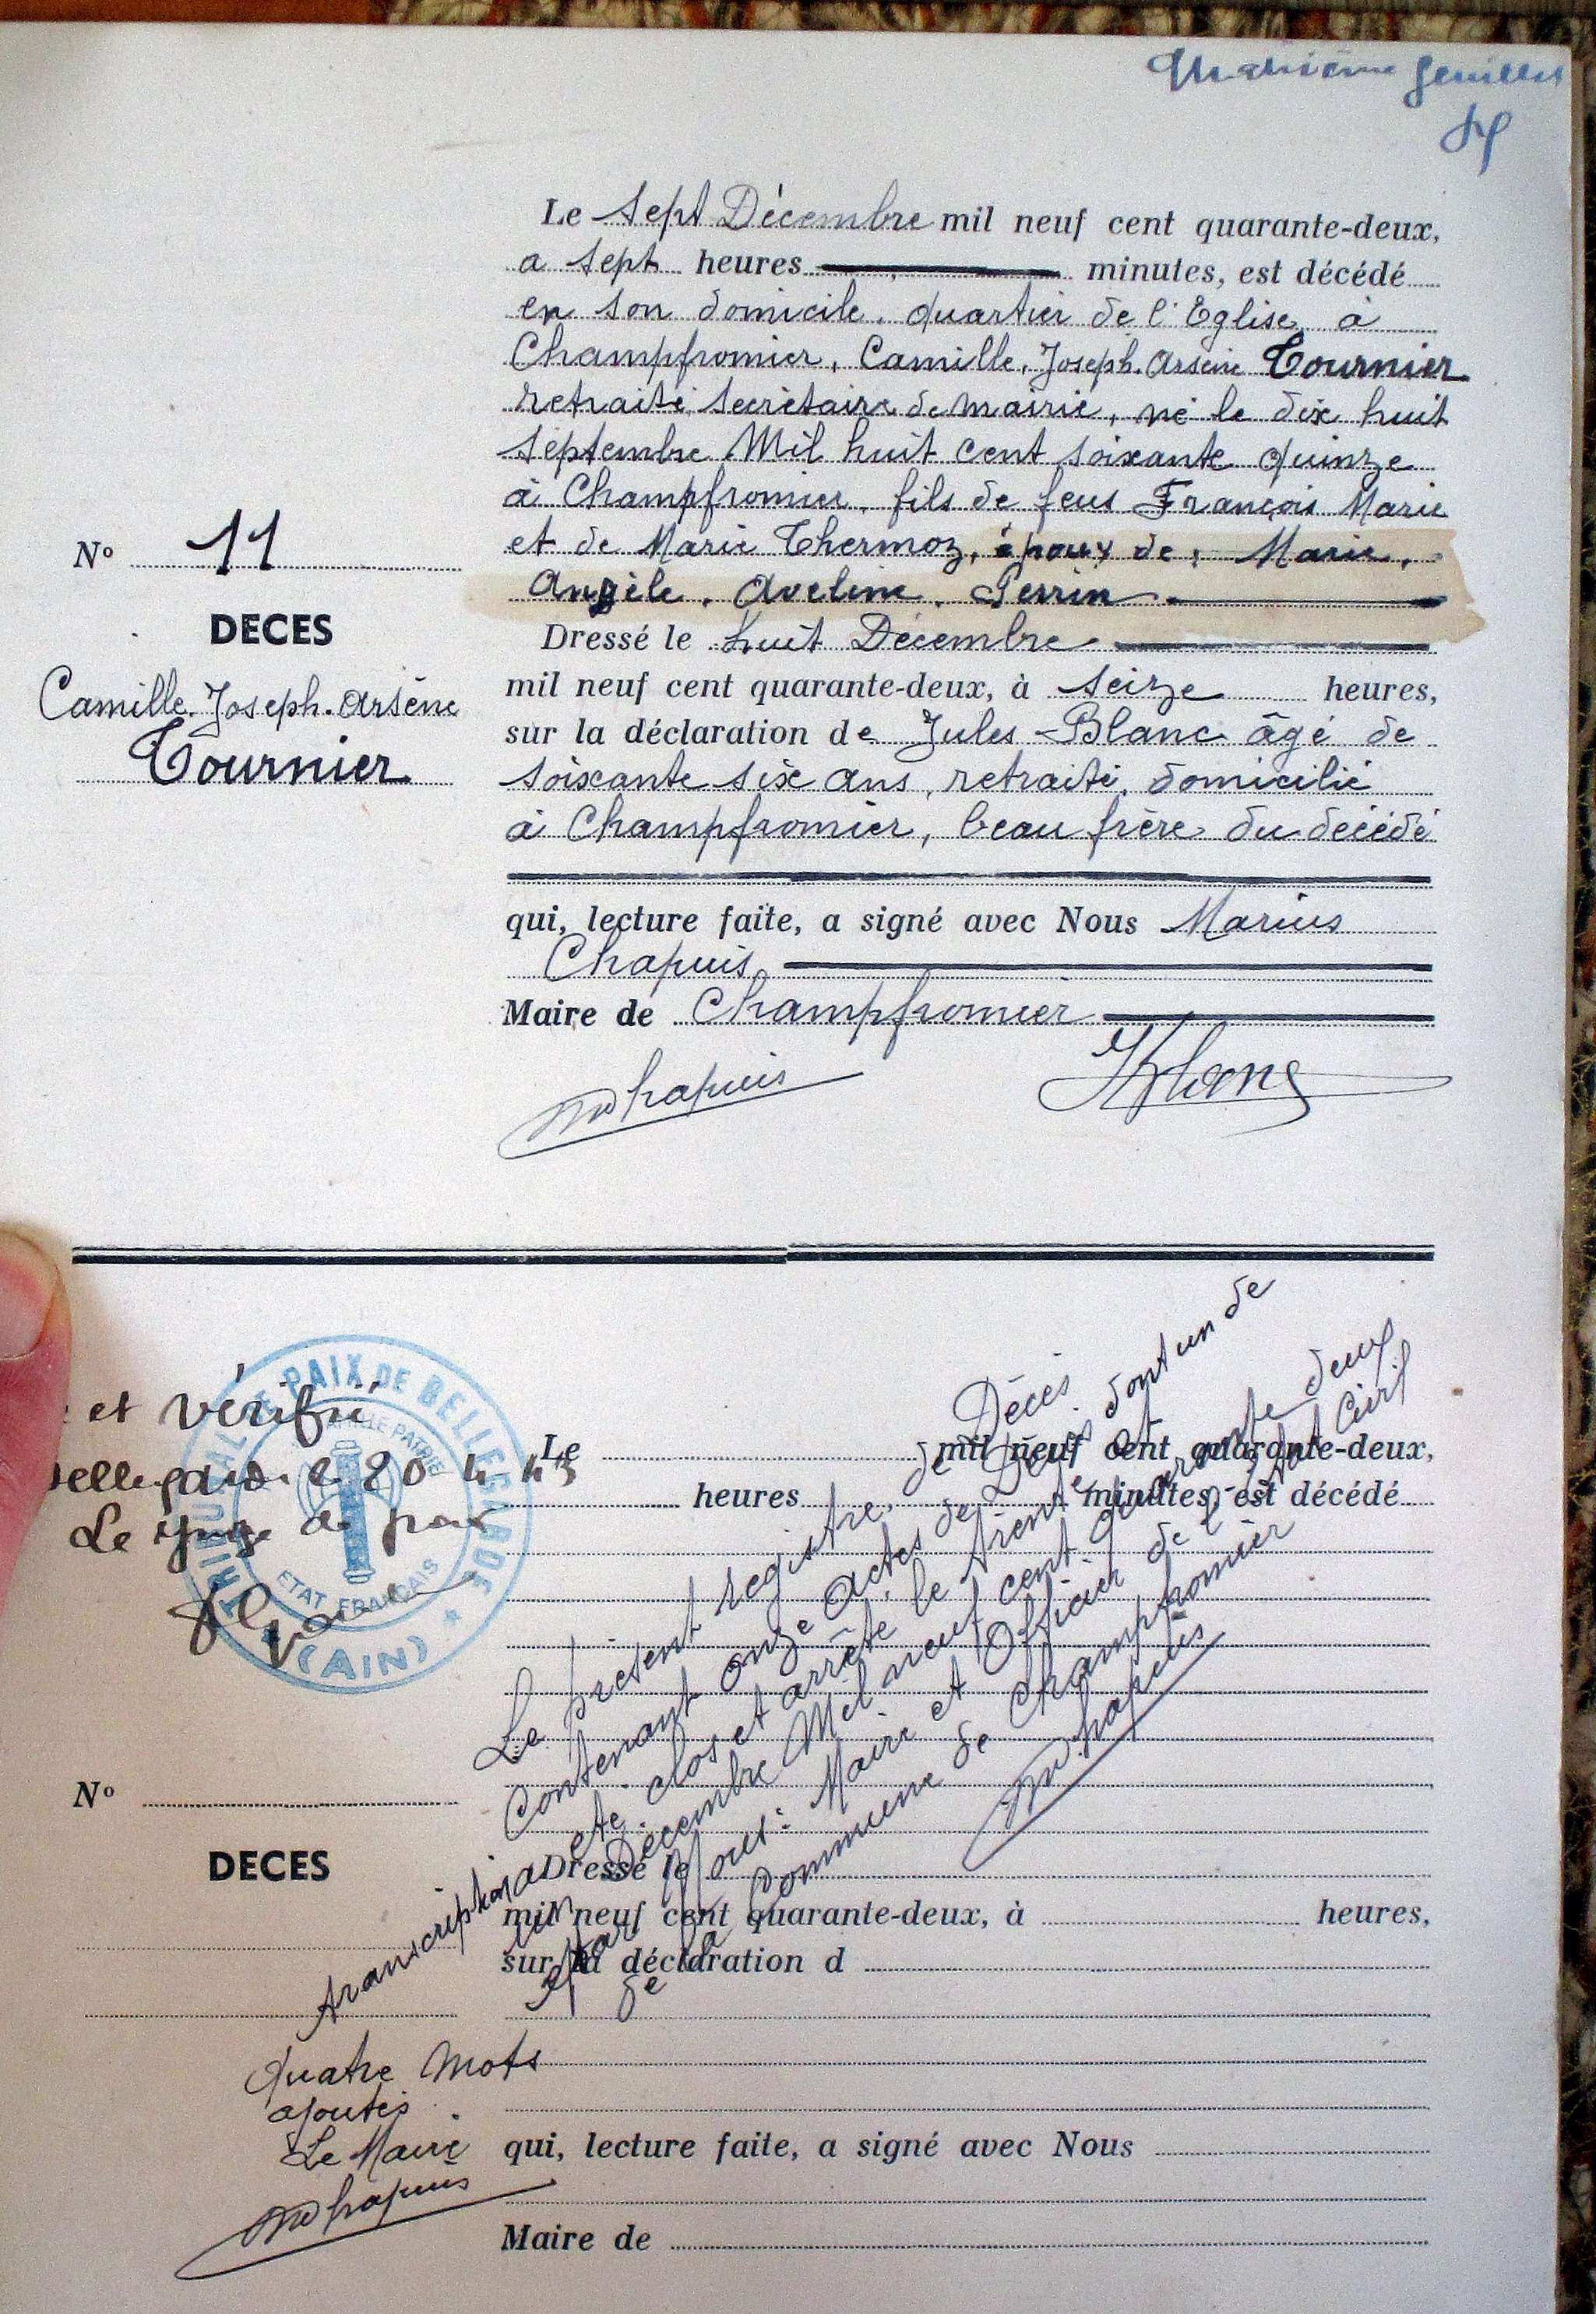 Quatrième feuillet
Le sept Décembre mil neuf cent quarante-deux,
a sept heures minutes, est décédé
en son domicile. quartier de l'Eglise, à
Champfromier, Camille, Joseph. Arsène Tournier
retraité, secrétaire de mairie, né le dix huit
septembre Mil huit cent soixante quinze
à Champfromier, fils de feus François Marie
et de Marie Thermoz, époux de, Marie,
Angèle. Aveline. Perrin.
Nº 11
DECES
Camille. Joseph. Arsène
Tournier
Dressé le huit Décembre
mil neuf cent quarante-deux, à seize heures,
sur la déclaration de Jules Blanc âgé de
soixante six ans, retraité, domicilié
à Champfromier, beau frère du décédé
qui, lecture faite, a signé avec Nous Marius
Chapuis
Maire de Champfromier
MChapuis
JBlanc
et vérifié
Bellegarde le 20 4 43
Le juge de paix
TRIBUNAL DE PAIX DE BELLEGARDE
(AIN)
FAMILLE PATRIE
ETAT FRANÇAIS
Le mil neuf cent quarante-deux,
heures minutes, est décédé
Le présent registre, de Décès
Contenant onze actes de Décès dont un de
transcription a été clos et arrêté le trente et
un Décembre Mil neuf cent quarante deux
par Nous: Maire et Officier de l'Etat Civil
de la Commune de Champfromier
MChapuis
Nº
DECES
Dressé le
mil neuf cent quarante-deux, à heures,
sur la déclaration d
quatre mots
ajoutés
Le Maire
MChapuis
qui, lecture faite, a signé avec Nous
Maire de